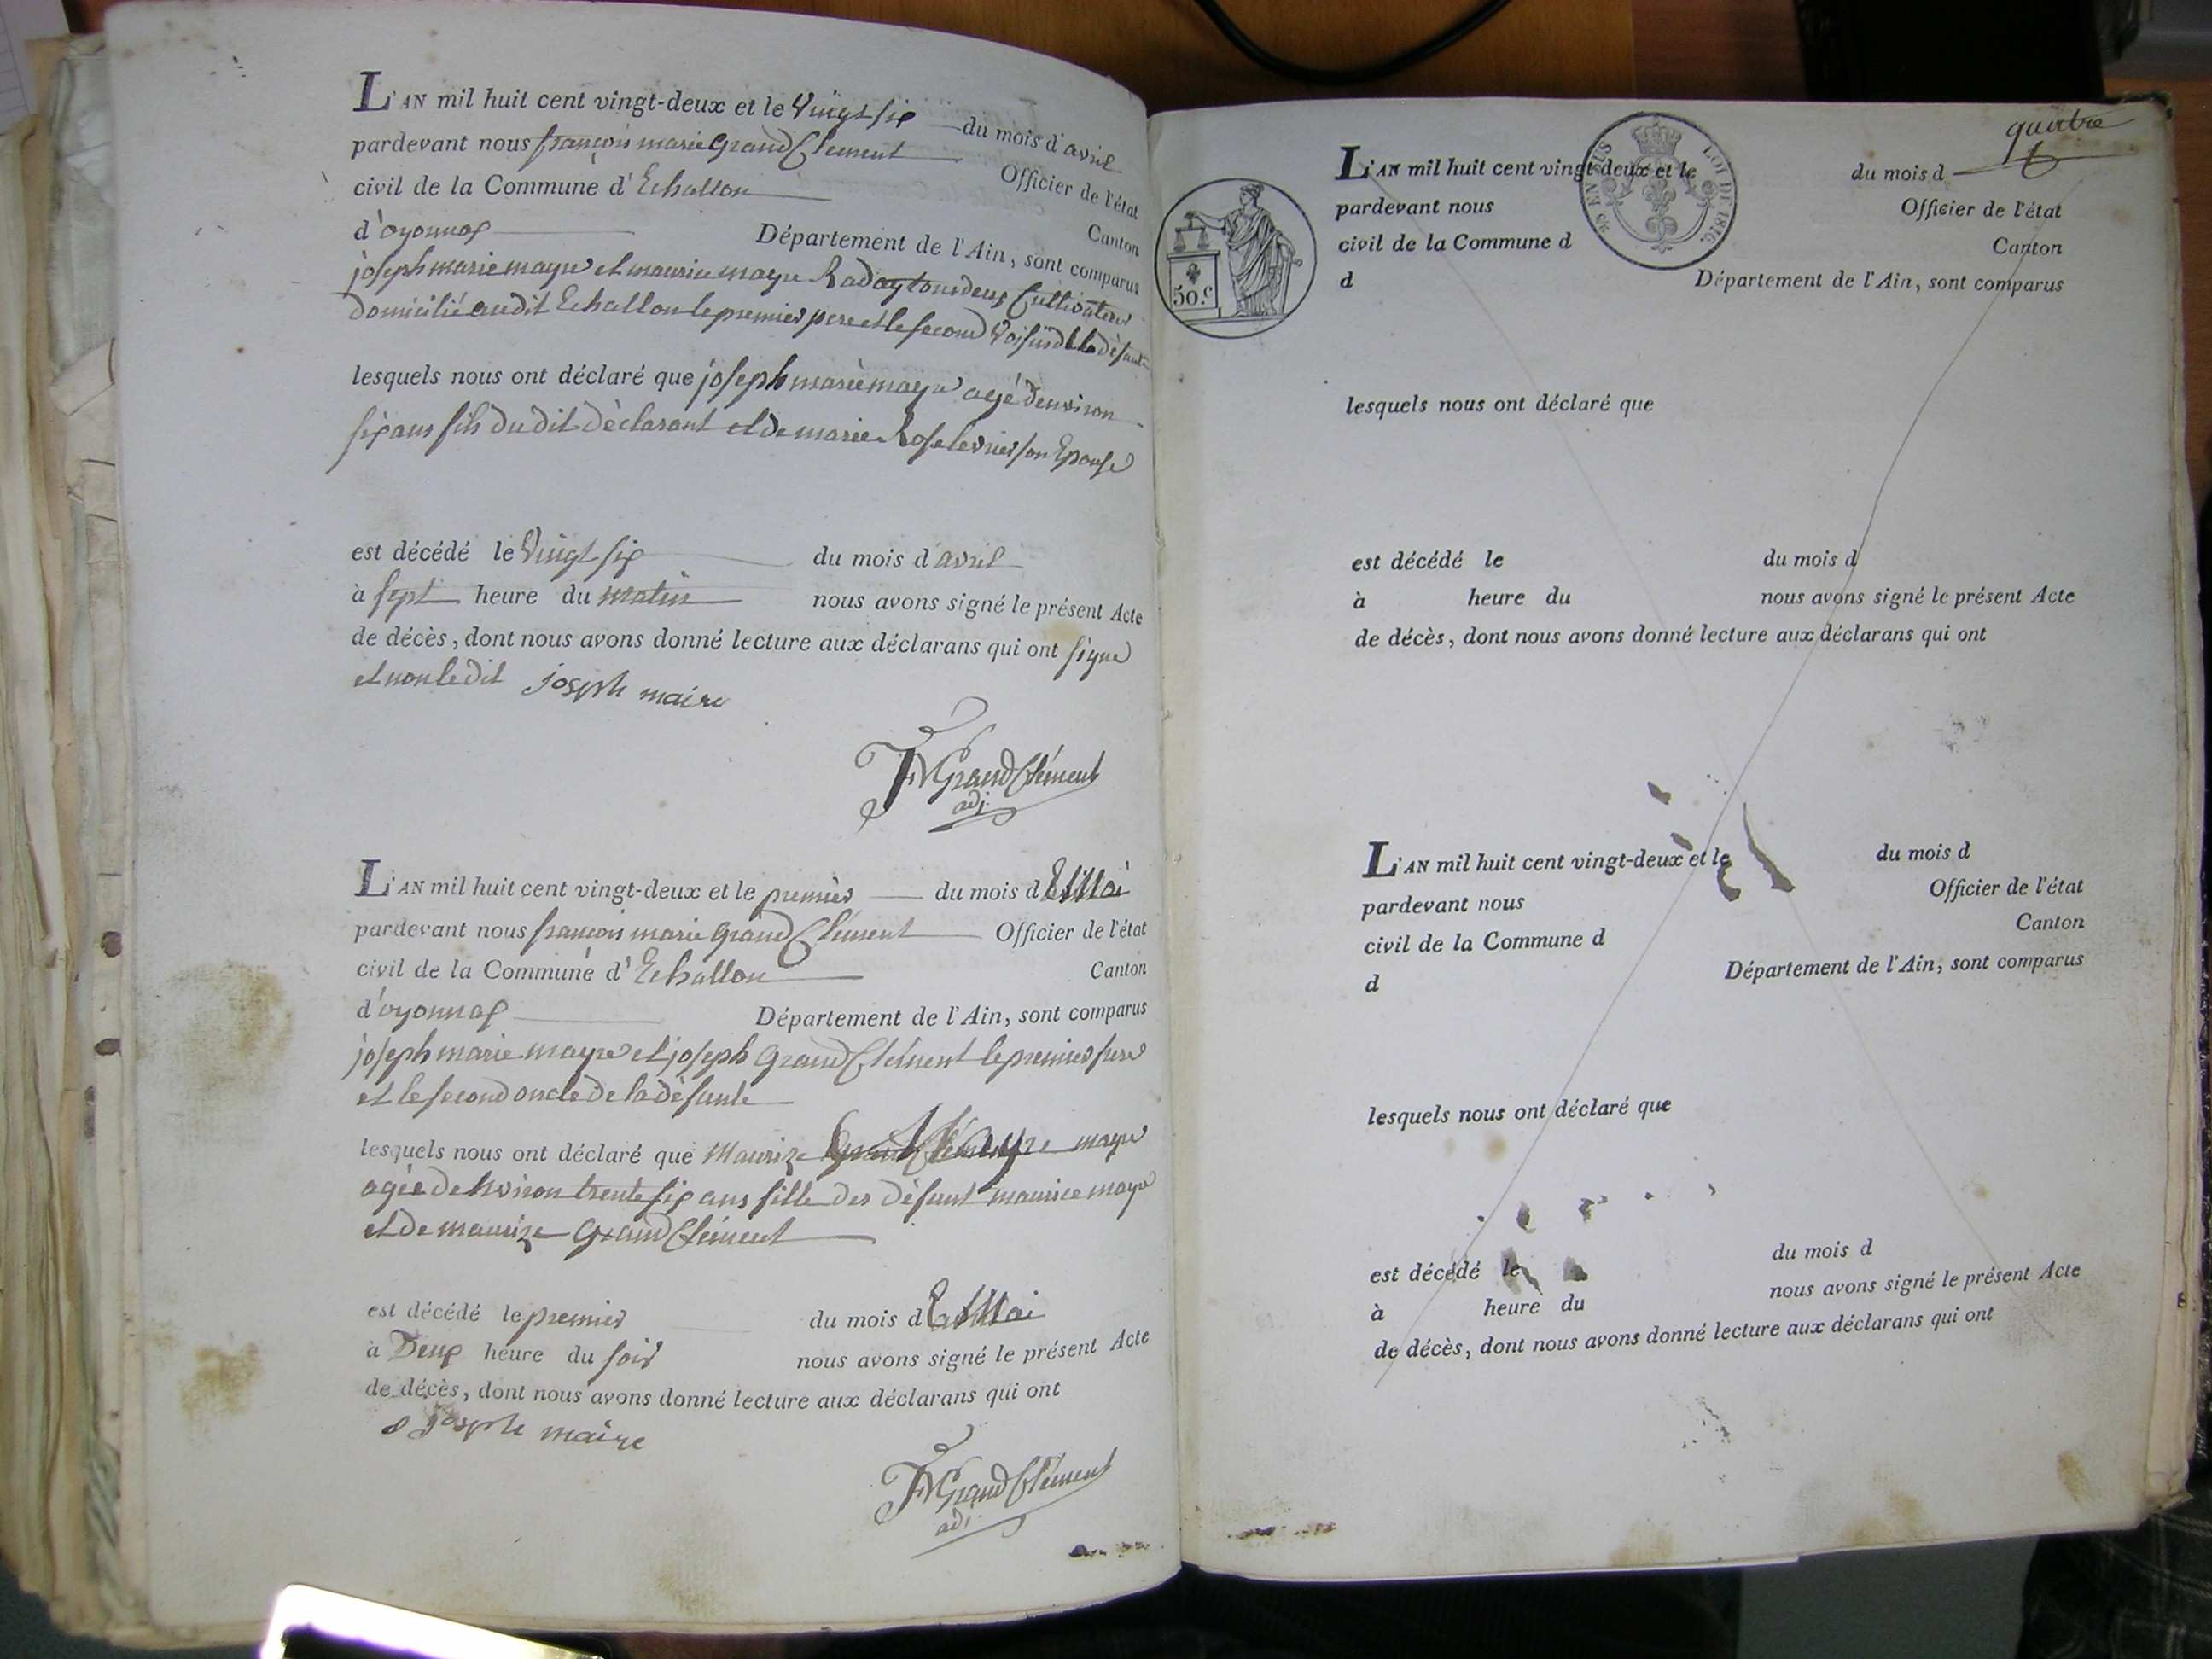 L'AN mil huit cent vingt-deux et le Vingt six du mois d'avril
pardevant nous françois marie Grand Clement Officier de l'état
civil de la Commune d'Echallon Canton
d'oyonnax Département de l'Ain, sont comparus
joseph marie mayre et maurice mayre Raday tous deux Cultivateurs
Domicilié audit Echallon le premier pere et le second Voisin de la défunt
lesquels nous ont déclaré que joseph marie mayre agé d'environ
six ans fils du dit Déclarant et de marie Rose levrier son Epouse
est décédé le Vingt six du mois d'avril
à sept heure du matin nous avons signé le présent Acte
de décès, dont nous avons donné lecture aux déclarans qui ont signé
et non ledit joseph maire
GrandClément
adj.
L'AN mil huit cent vingt-deux et le premier du mois d Mai
pardevant nous françois marie Grand Clément Officier de l'état
civil de la Commune d'Echallon Canton
d'oyonnax Département de l'Ain, sont comparus
joseph marie mayre et joseph Grand Clément le premier frere
et le second oncle de la défunte
lesquels nous ont déclaré que Maurize mayre
agée denviron trente six ans fille des défunt maurice mayre
et de maurize Grand Clément
est décédé le premier du mois d Mai
à Deux heure du soir nous avons signé le présent Acte
de décès, dont nous avons donné lecture aux déclarans qui ont
joseph maire
GrandClément
adj.
quatre
L'AN mil huit cent vingt-deux et le du mois d
pardevant nous Officier de l'état
civil de la Commune d Canton
d Département de l'Ain, sont comparus
50.c
LOI DE 1816.
EN SUS
lesquels nous ont déclaré que
est décédé le du mois d
à heure du nous avons signé le présent Acte
de décès, dont nous avons donné lecture aux déclarans qui ont
L'AN mil huit cent vingt-deux et le du mois d
pardevant nous Officier de l'état
civil de la Commune d Canton
d Département de l'Ain, sont comparus
lesquels nous ont déclaré que
est décédé le du mois d
à heure du nous avons signé le présent Acte
de décès, dont nous avons donné lecture aux déclarans qui ont